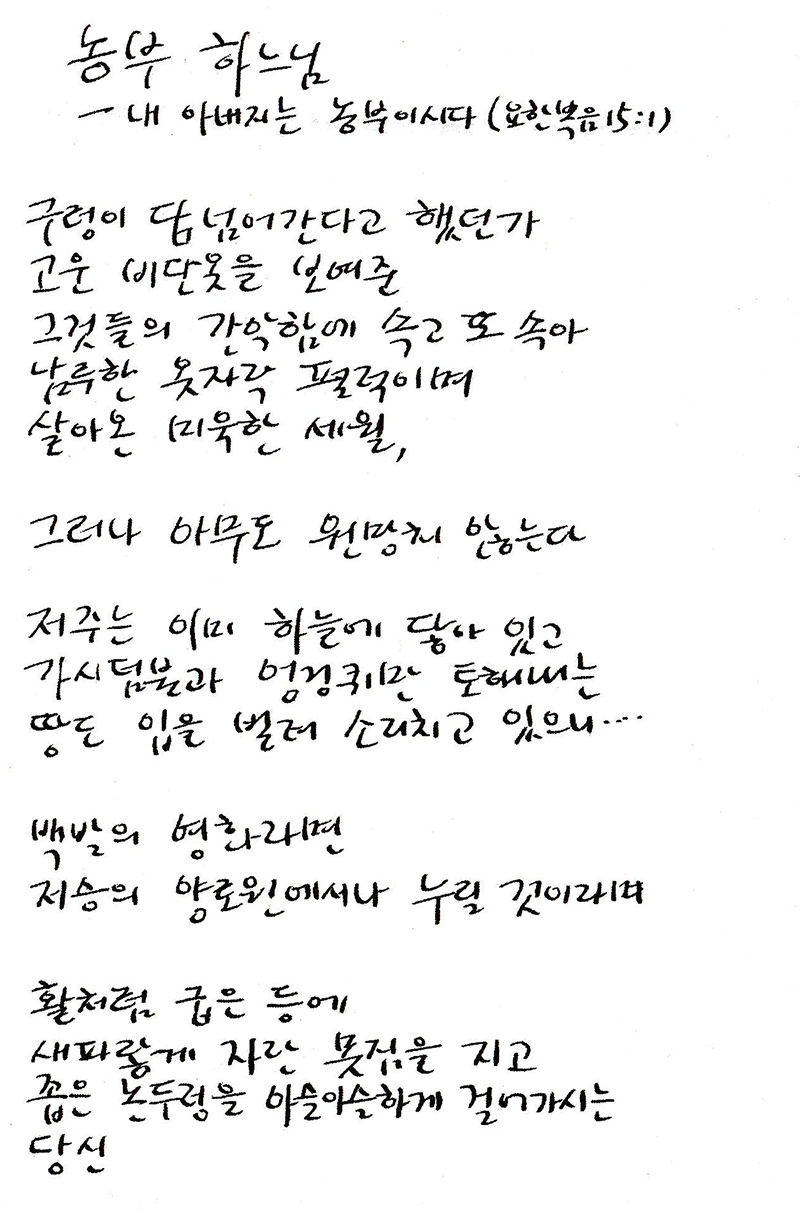 농부 하느님
- 내 아버지는 농부이시다 (요한복음 15:1)
구렁이 담 넘어간다고 했던가
고운 비단옷을 보여준
그것들의 간악함에 속고 또 속아
남루한 옷자락 펄럭이며
살아온 미욱한 세월,
그러나 아무도 원망치 않는다
저주는 이미 하늘에 닿아 있고
가시덤불과 엉겅퀴만 토해내는
땅도 입을 벌려 소리치고 있으니…
백발의 영화라면
저승의 양로원에서나 누릴 것이라며
활처럼 굽은 등에
새파랗게 자란 못짐을 지고
좁은 논두렁을 아슬아슬하게 걸어가시는
당신